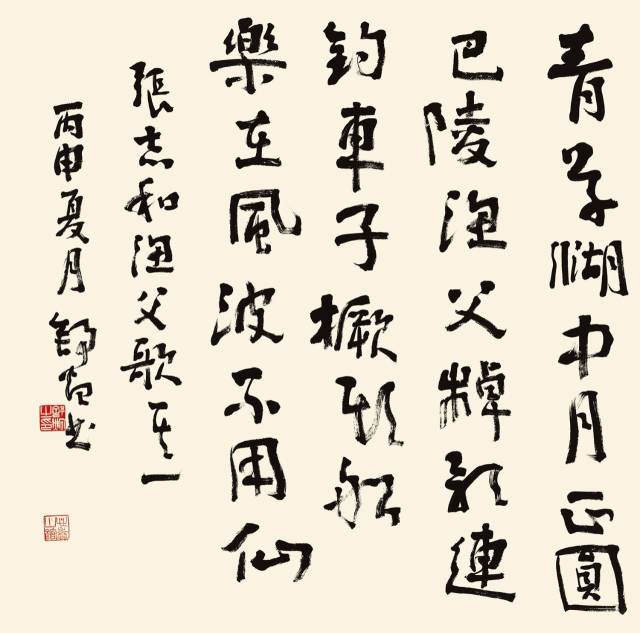 青草湖中月正圓
巴陵漁父棹歌連
釣車子橛頭船
樂在風波不用仙
張志和漁父歌其一
丙申夏月 書